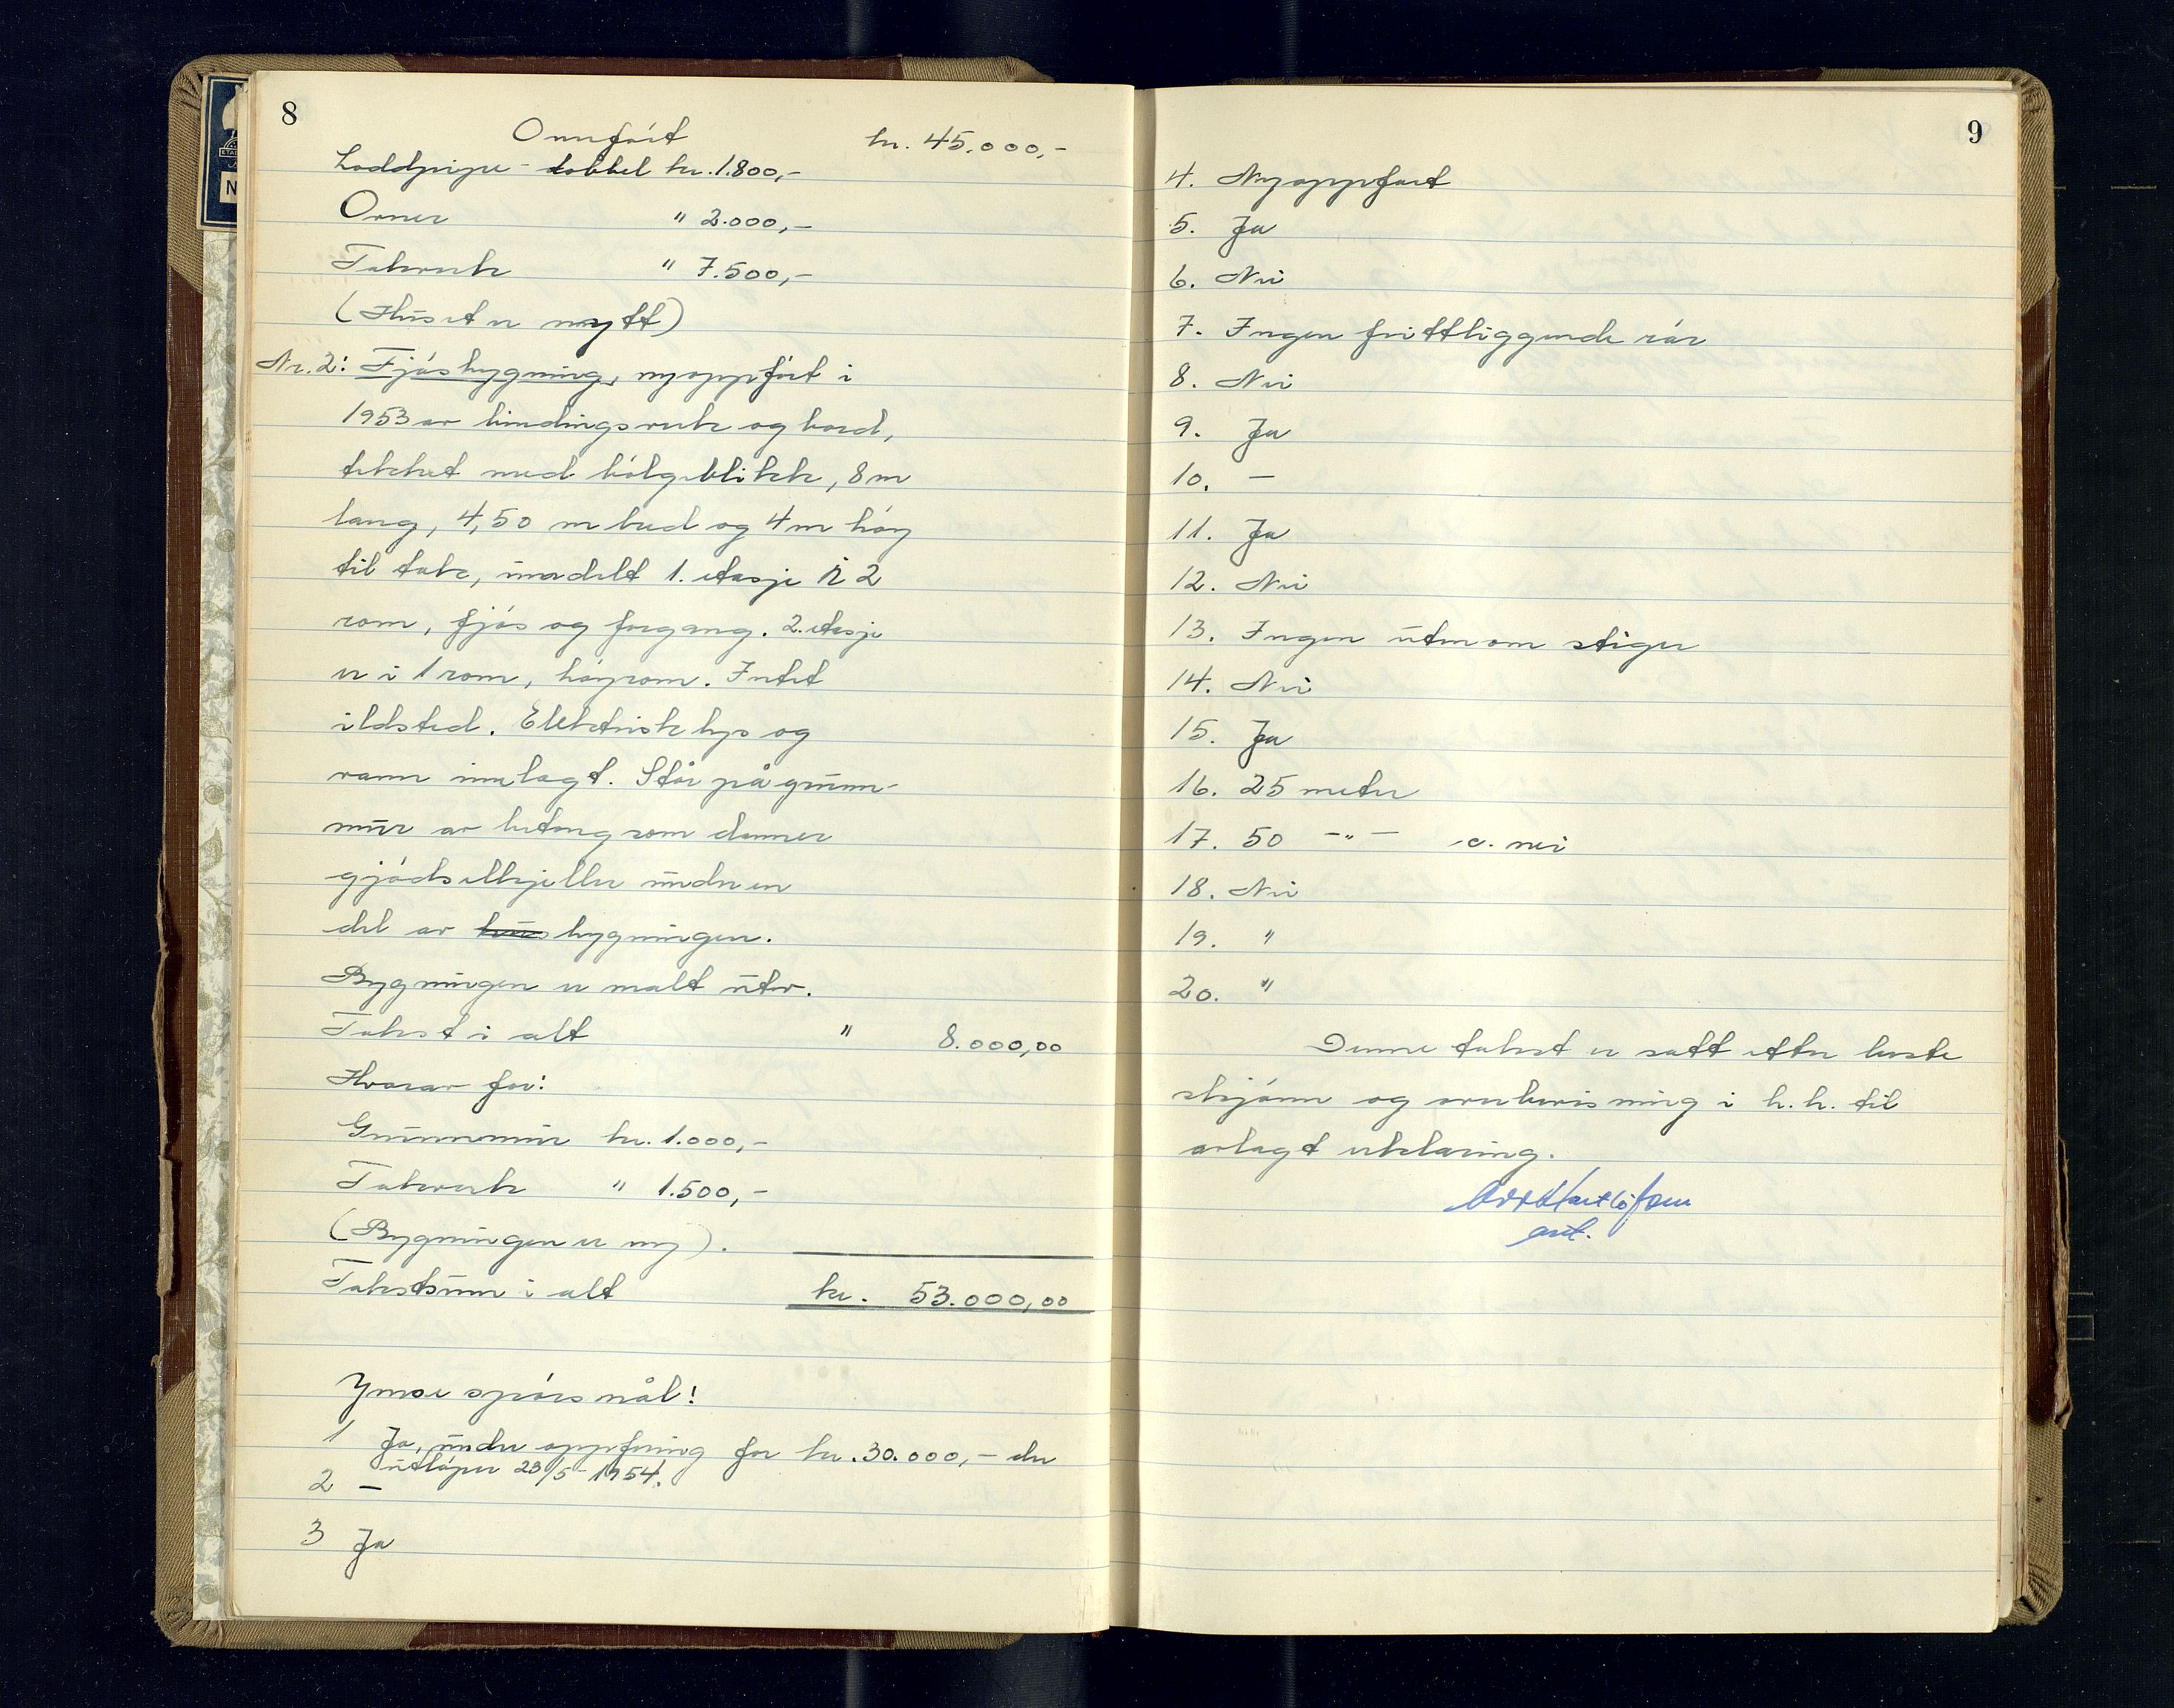 8
Omfört kr. 45.000,-
Loddpipe - dobbel kr. 1.800,-
Ovner " 2.000,-
Takverk " 7.500,-
(Huset er nytt)
Nr. 2: Fjösbygning, nyoppfört i
1953 av bindingsverk og bord,
tekket med bölgeblikk, 8 m
lang, 4,50 m bred og 4 m höy
til tak, innadelt 1. etasje i 2
rom, fjös og forgang. 2. etasje
er i 1 rom, höyrom. Intet
ildsted. Elektrisk lys og
vann innlagt. Står på grunn-
mur av betong som danner
gjödselkjeller under en
del av hus bygningen.
Bygningen er malt utv.
Takst i alt " 8.000,00
Hvorav for:
Grunnmur kr. 1.000,-
Takverk " 1.500,-
(Bygningen er ny).
Takstsum i alt kr. 53.000,00
Ymse spörsmål!
1 Ja, under oppföring for kr. 30.000,- der
utlöper 23/5-1954.
2 —
3 Ja
9
4. Nyoppfört
5. Ja
6. Nei
7. Ingen frittliggende rör
8. Nei
9. Ja
10. —
11. Ja
12. Nei
13. Ingen utenom stiger
14. Nei
15. Ja
16. 25 meter
17. 50 -"- c. nei
18. Nei
19. "
20. "
Denne takst er satt etter beste
skjönn og overbevisning i h.h. til
avlagt erklæring.